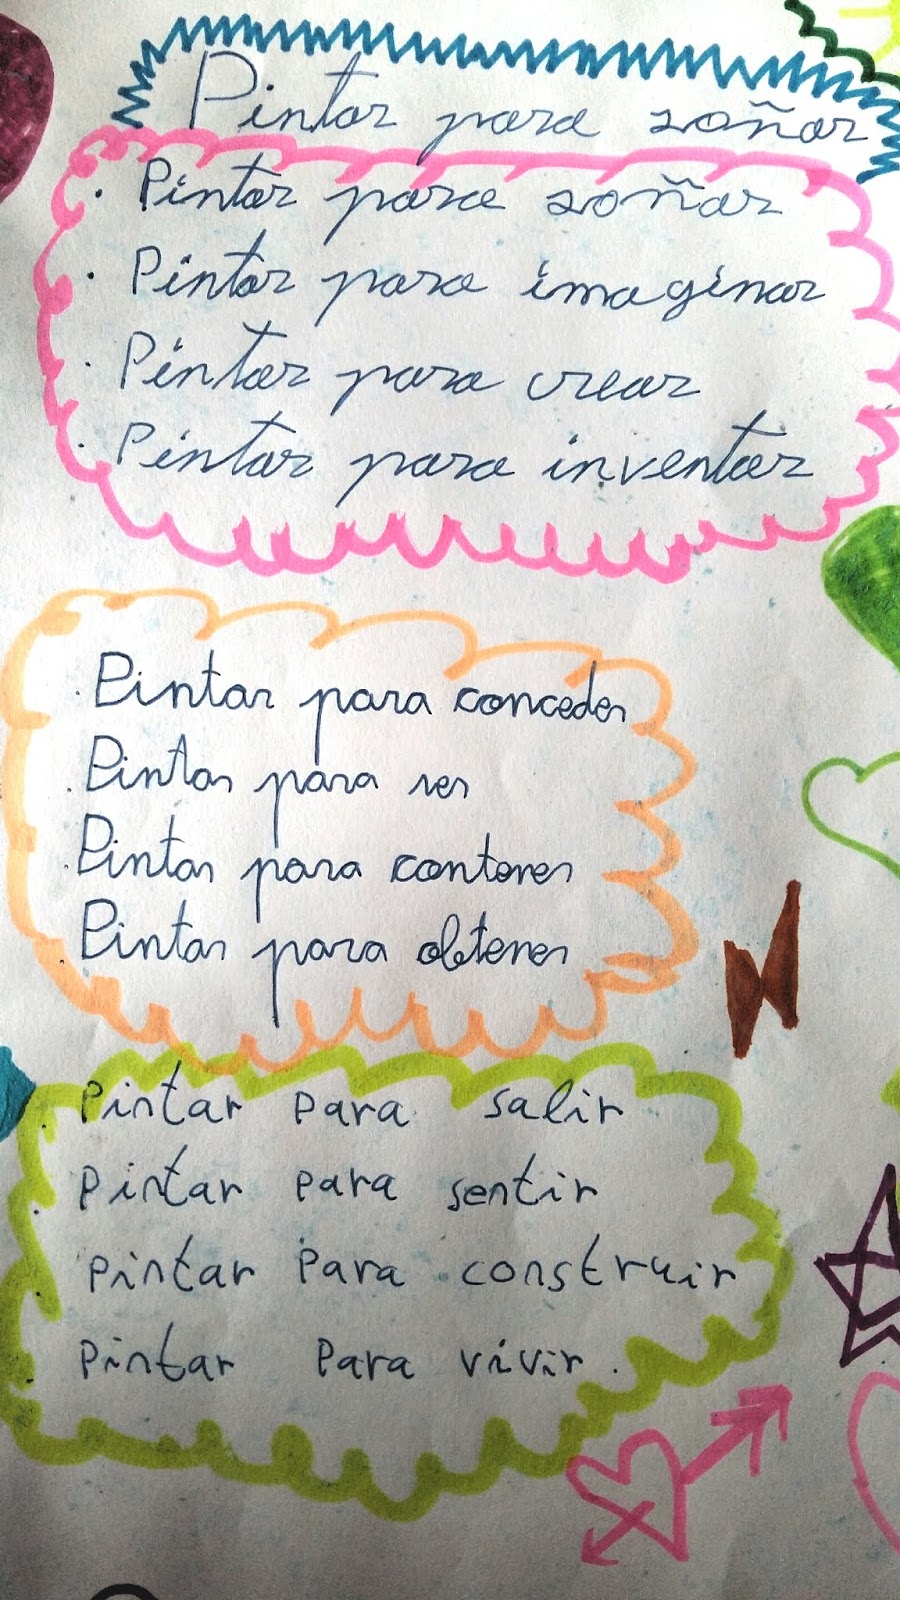 Pintar para soñar
· Pintar para soñar
· Pintar para imaginar
· Pintar para crear
· Pintar para inventar
· Pintar para conceder
· Pintar para ver
· Pintar para contener
· Pintar para obtener
· Pintar para salir
· Pintar para sentir
Pintar para construir
Pintar para vivir.